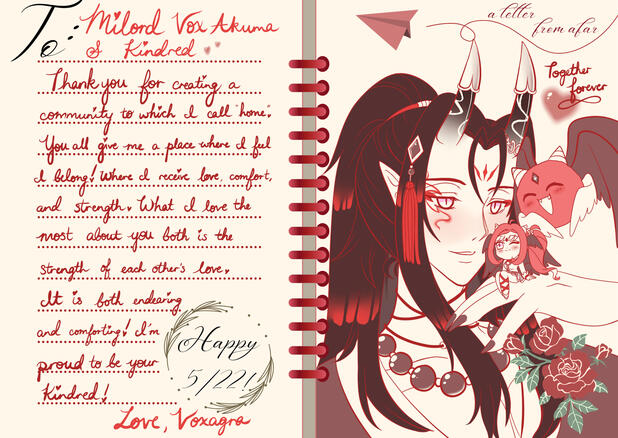 To:
Milord Vox Akuma
& Kindred
Thank you for creating a
community to which I call "home".
You all give me a place where I feel
I belong! Where I receive love, comfort,
and strength. What I love the
most about you both is the
strength of each other's love.
It is both endearing
and comforting! I'm
proud to be your
Kindred!
Love, Voxagra
Happy
5/22!
a letter
from afar
Together
Forever